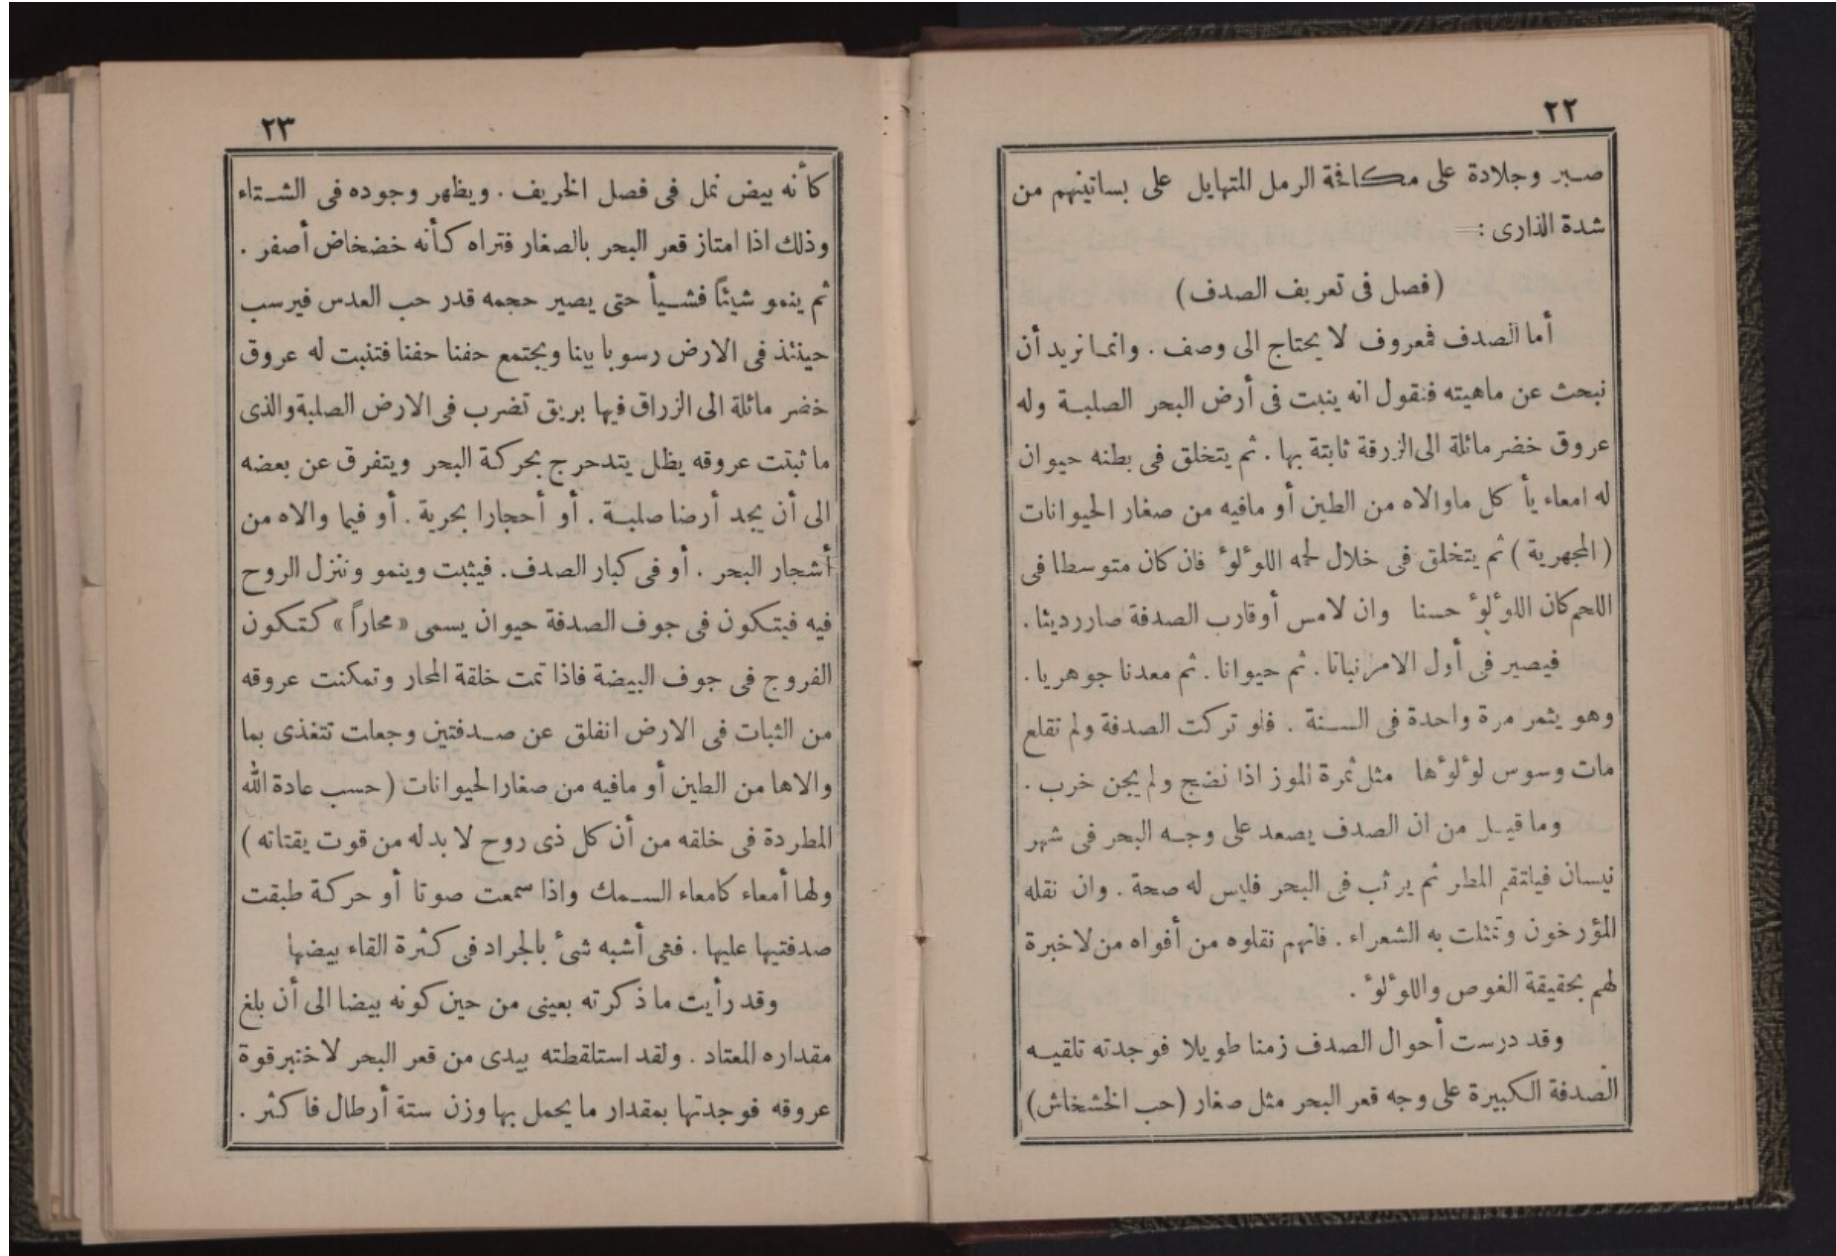 ٢٢
صبر وجلادة على مكافحة الرمل المتهايل على بساتينهم من
شدة الذارى :=
(فصل فى تعريف الصدف)
أما الصدف فمعروف لا يحتاج الى وصف . وانما نريد أن
نبحث عن ماهيته فنقول انه ينبت فى أرض البحر الصلبة وله
عروق خضر مائلة الى الزرقة ثابتة بها . ثم يتخلق فى بطنه حيوان
له امعاء يأكل ماوالاه من الطين أو مافيه من صغار الحيوانات
(المجهرية) ثم يتخلق فى خلال لحمه اللوٴلوٴ فان كان متوسطا فى
اللحم كان اللوٴلوٴ حسنا وان لامس أو قارب الصدفة صار رديئا .
فيصير فى أول الامر نباتا . ثم حيوانا . ثم معدنا جوهريا .
وهو يثمر مرة واحدة فى السنة . فلو تركت الصدفة ولم تقلع
مات وسوس لوٴلوٴها مثل ثمرة الموز اذا نضج ولم يجن خرب .
وما قيل من ان الصدف يصعد على وجه البحر فى شهر
نيسان فيلتقم المطر ثم يرئب فى البحر فليس له صحة . وان نقله
المؤرخون وتمثلت به الشعراء . فانهم نقلوه من أفواه من لا خبرة
لهم بحقيقة الغوص واللوٴلوٴ .
وقد درست أحوال الصدف زمنا طويلا فوجدته تلقيه
الصدفة الكبيرة على وجه قعر البحر مثل صغار (حب الخشخاش)
٢٣
كأنه بيض نمل فى فصل الخريف . ويظهر وجوده فى الشتاء
وذلك اذا امتاز قعر البحر بالصغار فتراه كأنه خضخاض أصفر .
ثم ينمو شيئاً فشيأ حتى يصير حجمه قدر حب العدس فيرسب
حينئذ فى الارض رسوبا بينا ويجتمع حفنا حفنا فتنبت له عروق
خضر مائلة الى الزراق فيها بريق تضرب فى الارض الصلبة والذى
ما ثبتت عروقه يظل يتدحرج بحركة البحر ويتفرق عن بعضه
الى أن يجد أرضا صلبة . أو أحجارا بحرية . أو فيما والاه من
أشجار البحر . أو فى كبار الصدف . فيثبت وينمو وتنزل الروح
فيه فيتكون فى جوف الصدفة حيوان يسمى «محاراً» كتكون
الفروج فى جوف البيضة فاذا تمت خلقة المحار وتمكنت عروقه
من الثبات فى الارض انفلق عن صدفتين وجعلت تتغذى بما
والاها من الطين أو مافيه من صغار الحيوانات (حسب عادة الله
المطردة فى خلقه من أن كل ذى روح لا بد له من قوت يقتاته)
ولها أمعاء كامعاء السمك واذا سمعت صوتا أو حركة طبقت
صدفتيها عليها . فهى أشبه شىٴ بالجراد فى كثرة القاء بيضها
وقد رأيت ما ذكرته بعينى من حين كونه بيضا الى أن بلغ
مقداره المعتاد . ولقد استلقطته بيدى من قعر البحر لاختبر قوة
عروقه فوجدتها بمقدار ما يحمل بها وزن ستة أرطال فاكثر .